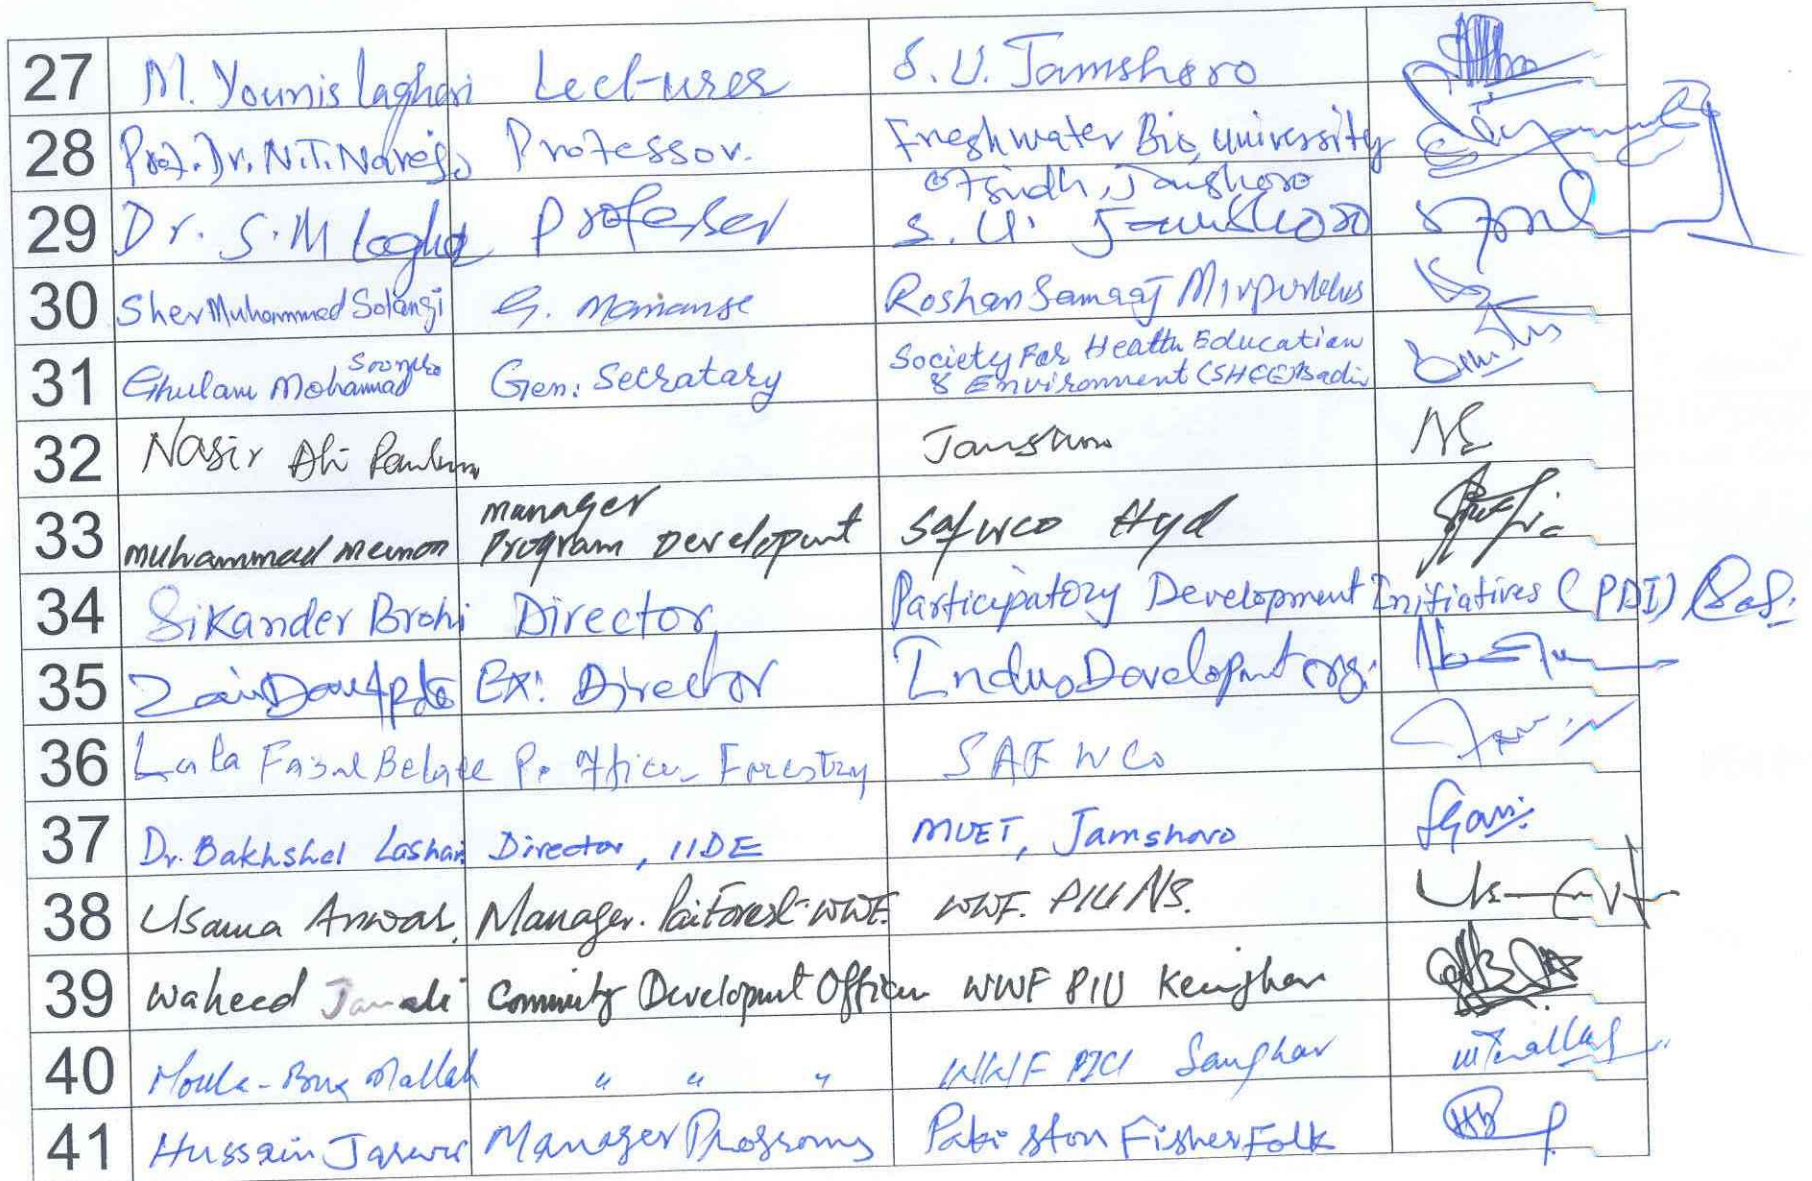 27 M. Younis Laghari Lecturer S.U. Jamshoro
28 Prof. Dr. N.T. Narejo Professor. Freshwater Bio, University
of Sindh, Jamshoro
29 Dr. S.M Professer S.U. Jamshoro
30 Sher Muhammad Solangi G. Roshan Samaaj Mirpurkhas
Soomro Society For Health Education
31 Ghulam Mohammad Gen: Secratary & Environment (SHEE) Badin
32 Nasir Ali Jamshoro
manager
33 muhammad memon Program Development Safwco Hyd
34 Sikander Brohi Director Participatory Development Initiatives (PDI)
35 Ex: Director Indus Development org.
36 Lala Faisal P. Officer Forestry SAFWCo
37 Dr. Bakhshal Lashari Director, IIDE MUET, Jamshoro
38 Usama Anwar. Manager. Pai Forest-WWF. WWF. PIU NS.
39 Waheed Jamali Community Development Officer WWF PIU Keenjhar
40 Moula-Bux Mallah " " " WWF PIU Sanghar
41 Hussain Manager Programs Pakistan Fisher Folk